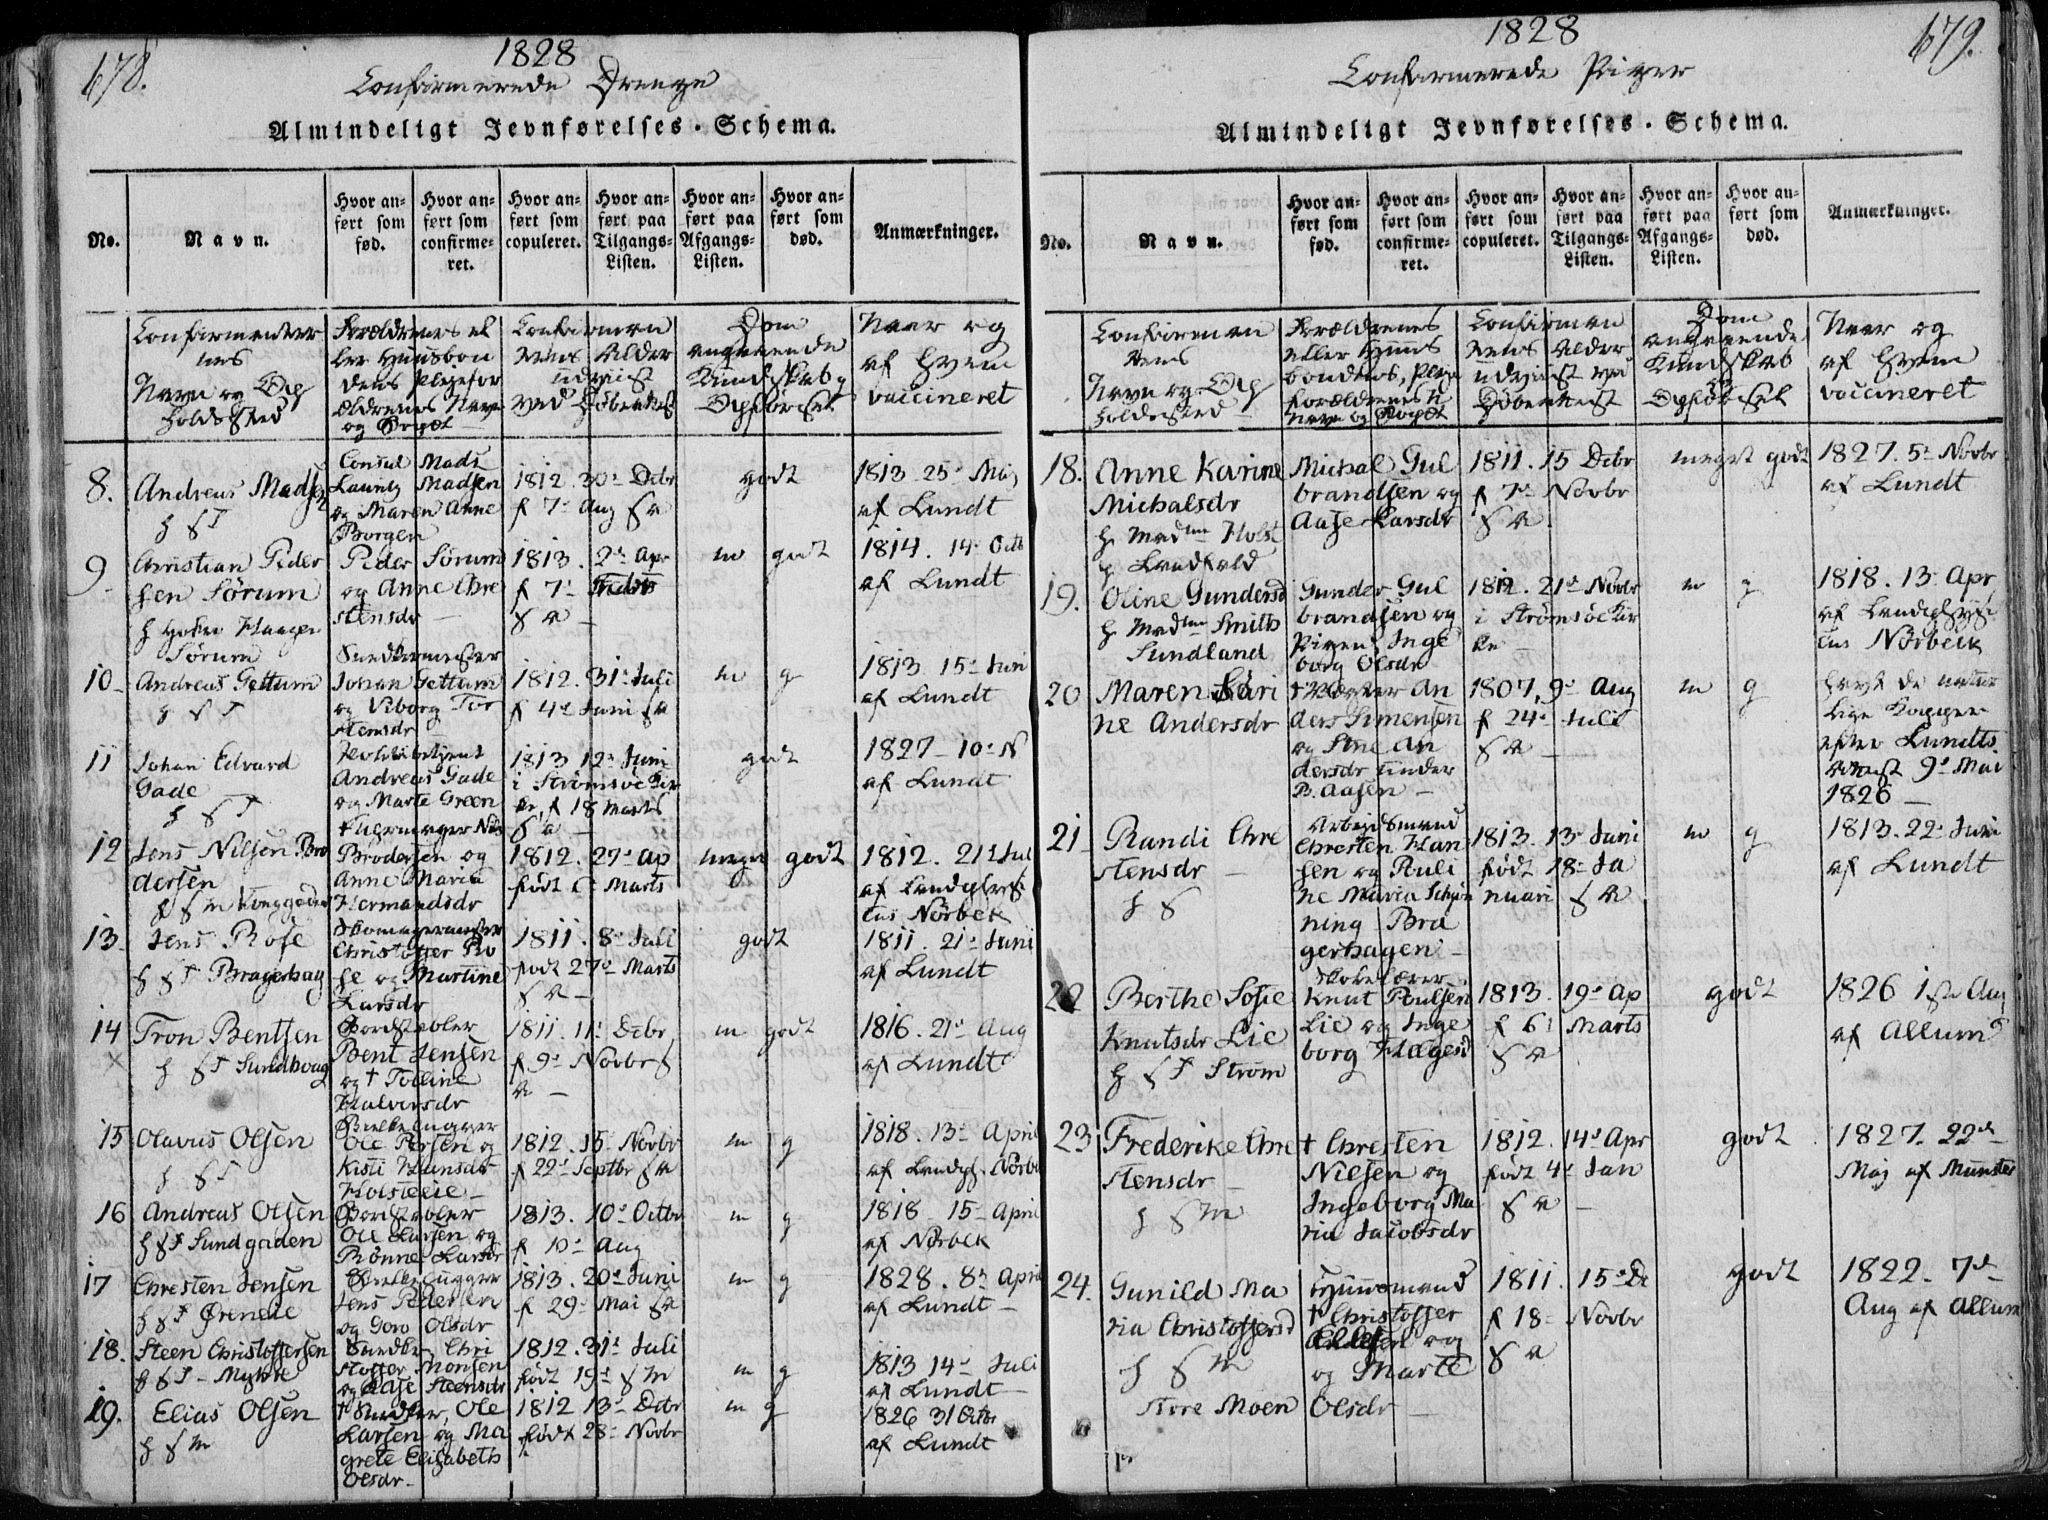 678.
1828
Confirmerede Drenge
Almindeligt Jevnførelses-Schema.
No.
Navn.
Hvor anført som fød.
Hvor anført som confirmeret.
Hvor anført som copuleret.
Hvor anført paa Tilgangs-Listen.
Hvor anført paa Afgangs-Listen.
Hvor anført som død.
Anmærkninger.
Confirmenter
nes
Navn og Op
holdssted
Forældrenes el
ler Huusbon
dens Plejefor
ældrenes Navn
og
Confirman
dens Alder
udviist
ved Døbeattest
Dom
angaaende
Kundskab og
Opførsel
Naar og
af hvem
vaccineret
8. Andreas Madsen
Consul Mads
Lauritz Madsen
og Maren Anne
Borgen
1812. 30te Decbr
f 7de Aug
godt
1813 25de Maj
af Lundt
9. Christian Peder
sen Sørum
h Haagen
Sørum
Peder Sørum
og Anne Chre
stensdr
1813. 2den Apr
f 7de Febr
m godt
1814. 14de Octb
af Lundt
10. Andreas Gettum
Snedkermester
Johan Gettum
og Viborg Tor
stensdr
1812. 31te Juli
f 4de Juni
m g
1813 15de Juni
af Lundt
11 Johan Edvard
Gade
Politibetjent
Andreas Gade
og Marte Green
1813 12te Juni
i Strømsøe Kir
ke, f 18 Marts
godt
1827 10de N
af Lundt
12 Jens Nilsen Bro
dersen
Brodersen og
Anne Maria
Hermandsdr
1812. 27de Ap
født 6te Marts
meget godt
1812. 21de Jul
af Landphysi
cus Nörbek
13. Jens Rose
Bragerhaug
Skomagermester
Christoffer Ro
se og Martine
Larsdr
1811. 8de Juli
født 27de Marts
godt
1811. 21de Juni
af Lundt
14 Tron Bentsen
Sundhoug
Bordstabler
Bent Jensen
og † Tolline
Halvorsdr
1811. 11te Decbr
f 9de Novbr
m godt
1816. 21de Aug
af Lundt
15 Olavus Olsen
Bielkehugger
Ole Persen og
Kisti Hansdr
1812. 15de Novbr
f 22de Septbr
m g
1818. 13de April
af Landph. Nörbe
16 Andreas Olsen
Sundgaden
Bordstabler
Ole Larsen og
Rönne Larsdr
1813. 10de Octbr
f 10de Aug
m g
1818 15de April
af Nörbek
17 Chresten Jensen
Ørenene
Bielkehugger
Jens Pedersen
og Goro Olsdr
1813. 20de Juni
f 29de Mai
m g
1828. 8de April
af Lundt
18. Steen Christoffersen
Myhre
Snedker Chri
stoffer Monsen
og Aase Steensdr
1812. 31te Juli
født 19de
m g
1813 14de Juli
af Lundt
19. Elias Olsen
† Snedker, Ole
Larsen og Ma
grete Elisabeth
Olsdr.
1812 13de Decbr
født 28de Novbr
m g
1826 31 Octbr
af Lundt
679.
1828
Confirmerede Piger
Almindeligt Jevnførelses-Schema.
No.
Navn.
Hvor anført som fød.
Hvor anført som confirmeret.
Hvor anført som copuleret.
Hvor anført paa Tilgangs-Listen.
Hvor anført paa Afgangs-Listen.
Hvor anført som død.
Anmærkninger.
Confirman
dens
Navn og Op
holdssted
Forældrenes
eller Huus
bondens, Pleje
forældrenes
Navn og
Confirman
dens Alder
udviist ved
Døbeattest
Dom
angaaende
Kundskab
og
Opførsel
Naar og
af hvem
vaccineret
18. Anne Karine
Michalsdr
h Madme Holst
Michal Gul
brandsen og
Aase Larsdr
1811. 15 Decbr
f 7de Novbr
meget godt
1827. 5te Novbr
af Lundt
19. Oline Gundersd
h Madme Smith
Sundland
Gunder Gul
brandsen og
Pigen Inge
borg Olsdr
1812. 21de Novbr
i Strømsöe Kir
ke
m g
1818. 13de Apr
af Landphysi
cus Nörbeck
20 Maren Kari
ne Andersdr
ders Simensen
og Stine An
dersdr under
B. Aasen
1807, 9de Aug
f 24de Juli
m g
havt de natur
lige Kopper
efter Lundts
Attest 9de Mai
1826
21 Randi Chre
stensdr
Arbeidsmand
Chresten Han
sen og Pauli
ne Maria Schiøn
ning Bra
gerhagen
1813. 13de Juni
født 18de Ja
nuari
m g
1813. 22de Juni
af Lundt
22 Berthe Sofie
Knutsdr Lie
Strøm
Skolelærer
Knut Poulsen
Lie og Inge
borg Hægesd
1813. 19de Ap
f 6te Marts
godt
1826 1ste Aug
af Allum
23 Frederike Chre
stensdr
† Chresten
Nilsen og
Ingeborg Ma
ria Jacobsdr
1812. 14de Apr
født 4de Jan
godt
1827. 22de
Maj af Munster
24. Gunild Ma
ria Christoffersd
Store Moen
Huusmand
† Christoffer
og
og Marte
Olsdr
1811. 15de De
f 18de Novbr
godt
1822. 7de
Aug af Allum